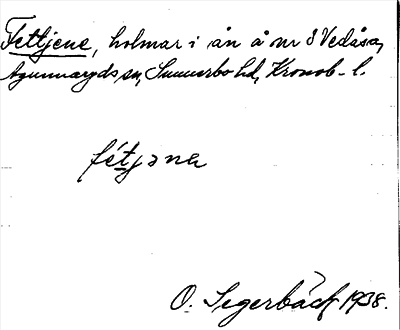 Fettjene, holmar i ån å nr 3 Vedåsa,
Agunnaryds sn, Sunnerbo hd, Kronob. l.
fétjəna
O. Segerbäck 1938.